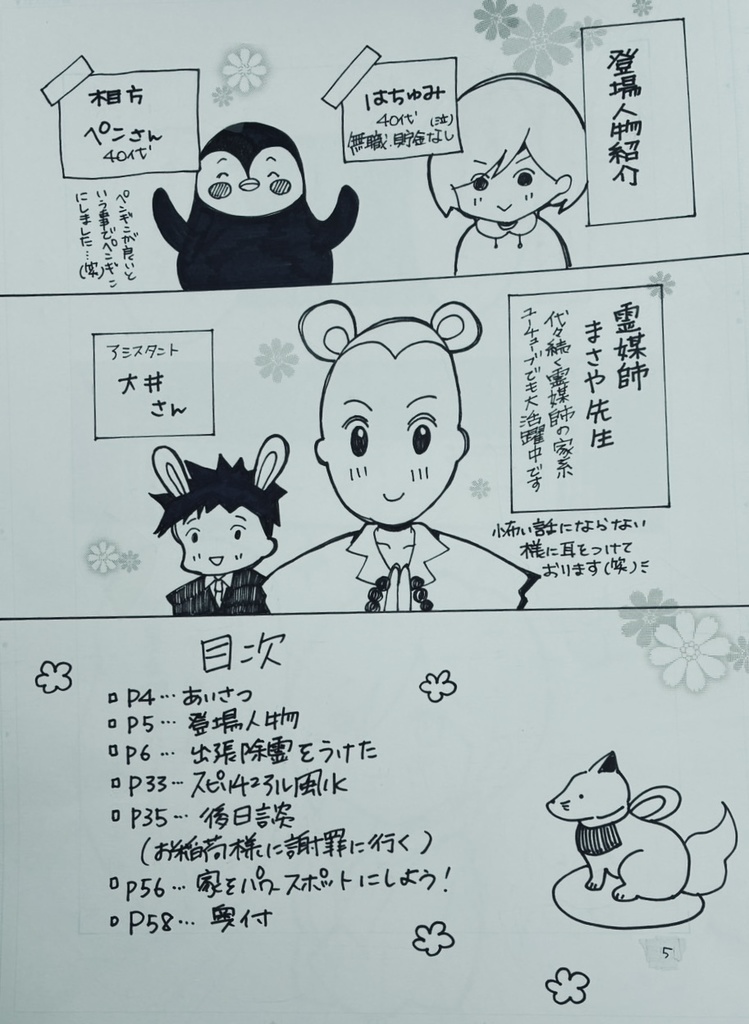 登場人物紹介
はちゅみ
40代(泣)
無職.貯金なし
相方
ペンさん
40代
ペンギンが良いと
いう事でペンギン
にしました…(笑)
霊媒師
まさや先生
代々続く霊媒師の家系
ユーチューブでも大活躍中です
怖い話にならない
様に耳をつけて
おります(笑)
アシスタント
大井
さん
目次
P4… あいさつ
P5… 登場人物
P6… 出張除霊をうけた
P33…スピリチュアル風水
P35… 後日談
(お稲荷様に謝罪に行く)
P56… 家をパワースポットにしよう!
P58… 奥付
5